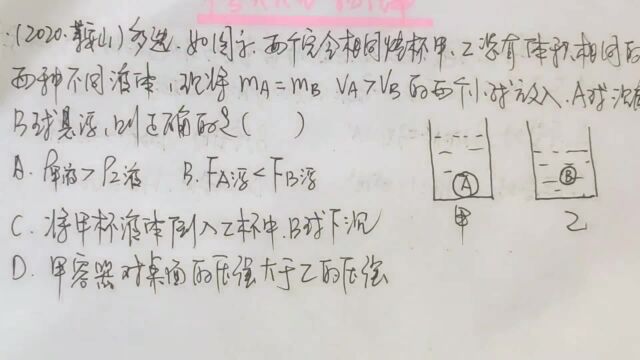 (2020·鞍山)多选.如图示.两个完全相同烧杯甲、乙装有体积相同的
两种不同液体,现将 mA=mB VA>VB的两个小球放入.A球沉在
B球悬浮,则正确的是( )
A. ρ甲液>ρ乙液 B. FA浮<FB浮
C. 将甲杯液体倒入乙杯中.B球下沉
D. 甲容器对桌面的压强大于乙的压强
A B
甲 乙